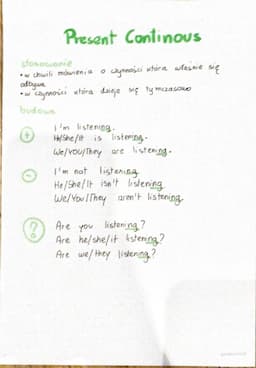 Present Continous
stosowanie
• w chwili mówienia o czynności która właśnie się
odbywa
• w czynności która dzieje się tymczasowo
budowa
+ I'm listening.
He/She/It is listening.
We/You/They are listening.
- I'm not listening
He/She/It isn't listening
We/You/They aren't listening.
? Are you listening?
Are he/she/it listening?
Are we/they listening?